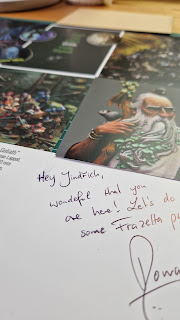 Goliath"
Hey Jindrich,
wondeful that you
are here! Let's do
some Frazetta